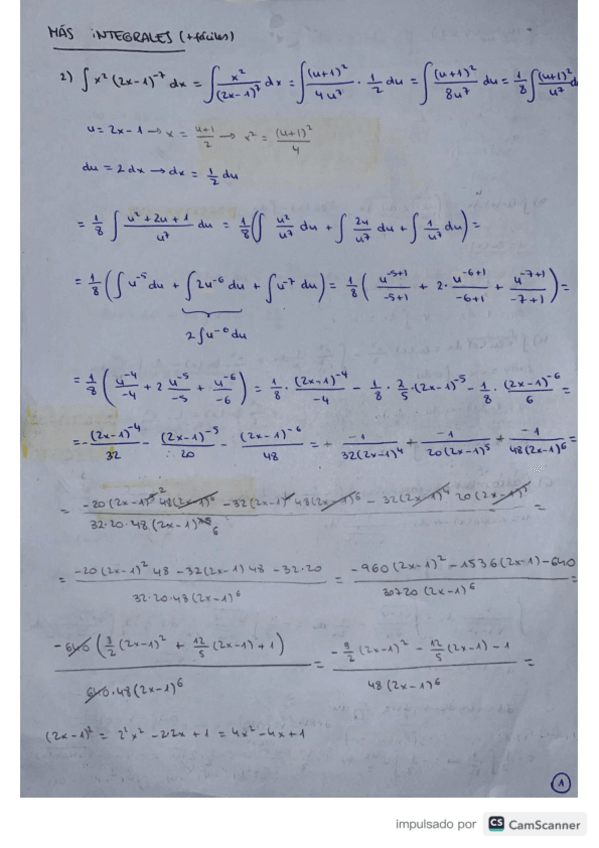 MÁS INTEGRALES (+fáciles)
2) ∫ x² (2x-1)⁻⁷ dx = ∫ x²/(2x-1)⁷ dx = ∫ (u+1)²/4u⁷ · 1/2 du = ∫ (u+1)²/8u⁷ du = 1/8 ∫ (u+1)²/u⁷ d
u = 2x-1 → x = (u+1)/2 → x² = (u+1)²/4
du = 2dx → dx = 1/2 du
= 1/8 ∫ (u²+2u+1)/u⁷ du = 1/8 (∫ u²/u⁷ du + ∫ 2u/u⁷ du + ∫ 1/u⁷ du) =
= 1/8 (∫ u⁻⁵ du + ∫ 2u⁻⁶ du + ∫ u⁻⁷ du) = 1/8 (u⁻⁵⁺¹/-5+1 + 2 · u⁻⁶⁺¹/-6+1 + u⁻⁷⁺¹/-7+1) =
2 ∫ u⁻⁶ du
= 1/8 (u⁻⁴/-4 + 2 u⁻⁵/-5 + u⁻⁶/-6) = 1/8 · (2x-1)⁻⁴/-4 - 1/8 · 2/5 · (2x-1)⁻⁵ - 1/8 · (2x-1)⁻⁶/6 =
= - (2x-1)⁻⁴/32 - (2x-1)⁻⁵/20 - (2x-1)⁻⁶/48 = + -1/32(2x-1)⁴ + -1/20(2x-1)⁵ + -1/48(2x-1)⁶ =
= -20(2x-1)² 48(2x-1)⁶ - 32(2x-1) 48(2x-1)⁶ - 32(2x-1)⁴ 20(2x-1)⁵ / 32·20·48(2x-1)⁶ =
= -20(2x-1)² 48 - 32(2x-1) 48 - 32·20 / 32·20·48(2x-1)⁶ = -960(2x-1)² - 1536(2x-1) - 640 / 30720(2x-1)⁶ =
-640 (3/2 (2x-1)² + 12/5 (2x-1) + 1) / 640·48(2x-1)⁶ = -3/2 (2x-1)² - 12/5 (2x-1) - 1 / 48(2x-1)⁶ =
(2x-1)² = 2²x² - 2·2x + 1 = 4x² - 4x + 1
1
impulsado por CS CamScanner